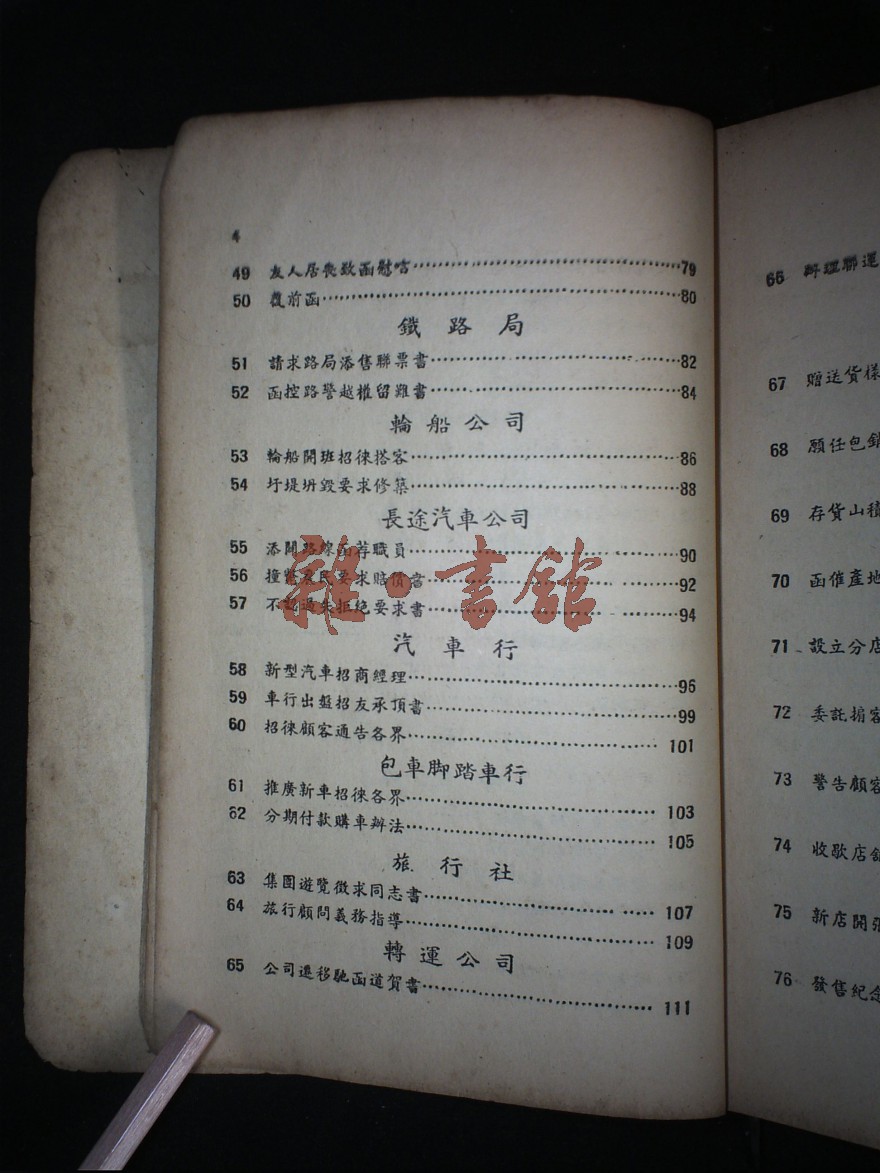 4
49 友人居喪致函慰唁 79
50 覆前函 80
鐵路局
51 請求路局添售聯票書 82
52 函控路警越權留難書 84
輪船公司
53 輪船開班招徠搭客 86
54 圩堤坍毀要求修築 88
長途汽車公司
55 添開路線函荐職員 90
56 撞斃農民要求賠償書 92
57 不認過失拒絕要求書 94
汽車行
58 新型汽車招商經理 96
59 車行出盤招友承頂書 99
60 招徠顧客通告各界 101
包車脚踏車行
61 推廣新車招徠各界 103
62 分期付款購車辦法 105
旅行社
63 集團遊覽徵求同志書 107
64 旅行顧問義務指導 109
轉運公司
65 公司遷移馳函道賀書 111
66 辦理聯運
67 贈送貨樣
68 願任包銷
69 存貨山積
70 函催產地
71 設立分店
72 委託掮客
73 警告顧客
74 收歇店舖
75 新店開張
76 發售紀念
雜·書館